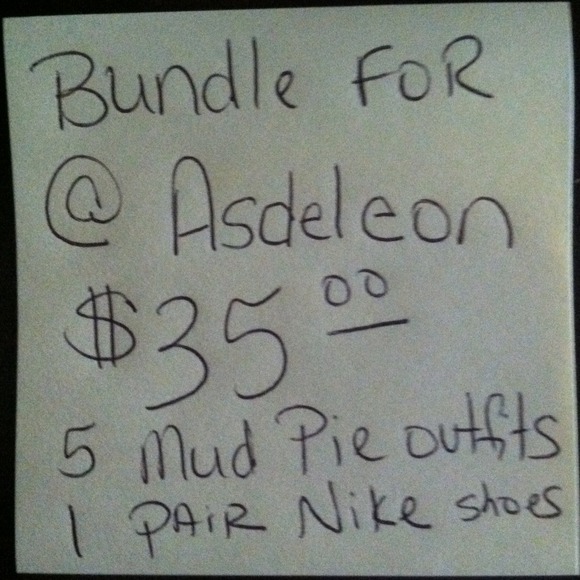 Bundle FOR
@ Asdeleon
$35 00
5 Mud Pie outfits
1 PAiR Nike shoes